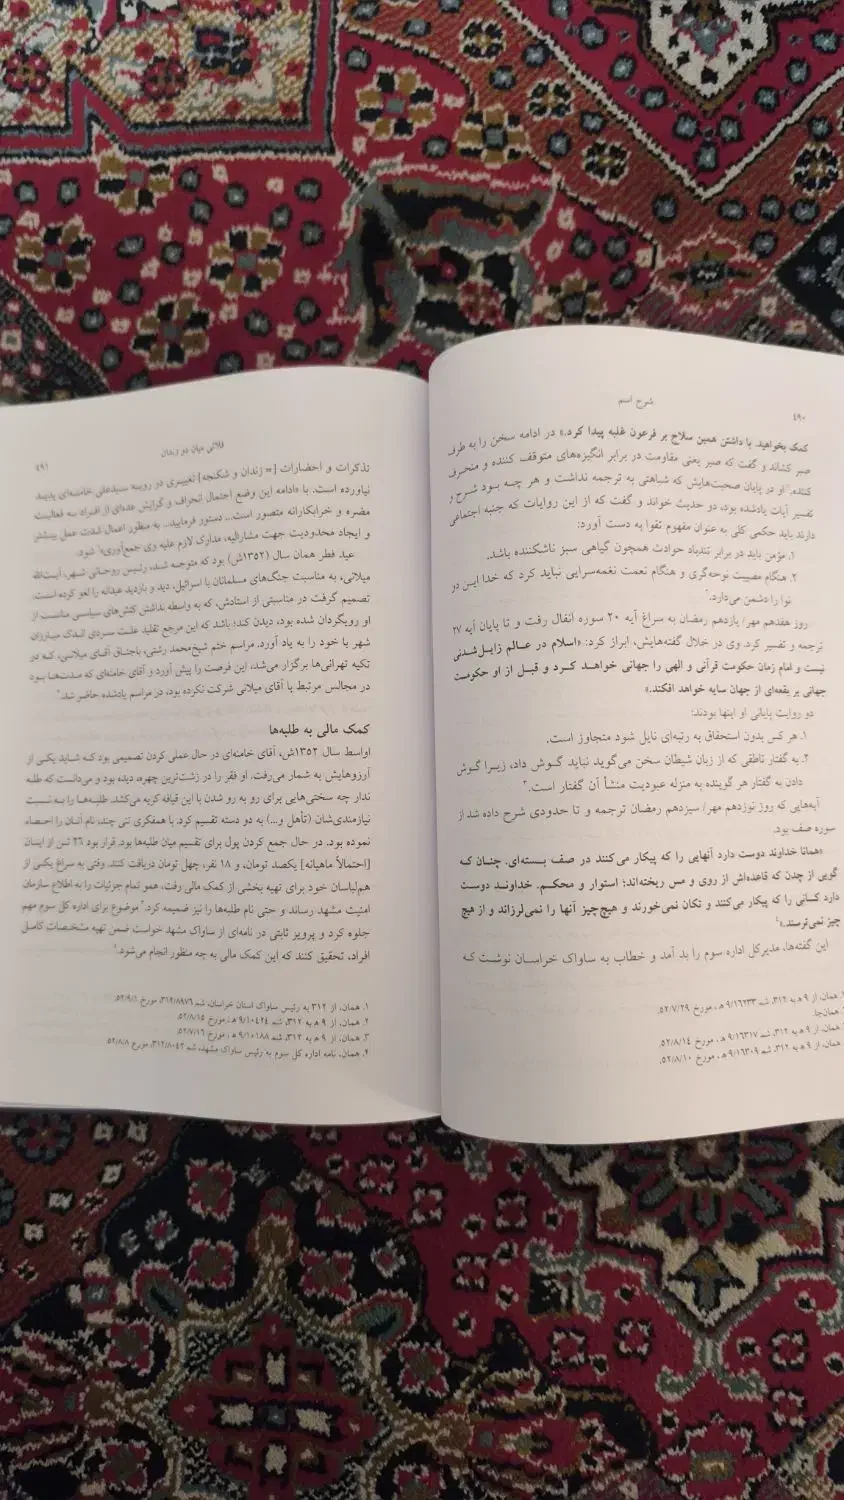 ۴۹۰
شرح اسم
کمک بخواهید. با داشتن همین سلاح بر فرعون غلبه پیدا کرد.» در ادامه سخن را به طرف
صبر کشاند و گفت که صبر یعنی مقاومت در برابر انگیزه‌های متوقف کننده و منحرف
کننده. او در پایان صحبت‌هایش که شباهتی به ترجمه نداشت و هر چه بود شرح و
تفسیر آیات یادشده بود، دو حدیث خواند و گفت که از این روایات که جنبه اجتماعی
دارند باید حکمی کلی به عنوان مفهوم تقوا به دست آورد:
۱. مؤمن باید در برابر تندباد حوادث همچون گیاهی سبز ناشکننده باشد.
۲. هنگام مصیبت نوحه‌گری و هنگام نعمت نغمه‌سرایی نباید کرد که خدا این دو
نوا را دشمن می‌دارد.۲
روز هفدهم مهر/ یازدهم رمضان به سراغ آیه ۲۰ سوره انفال رفت و تا پایان آیه ۲۷
ترجمه و تفسیر کرد. وی در خلال گفته‌هایش، ابراز کرد: «اسلام در عالم زایل‌شدنی
نیست و امام زمان حکومت قرآنی و الهی را جهانی خواهد کرد و قبل از او حکومت
جهانی بر بقعه‌ای از جهان سایه خواهد افکند.»
دو روایت پایانی او اینها بودند:
۱. هر کس بدون استحقاق به رتبه‌ای نایل شود متجاوز است.
۲. به گفتار ناطقی که از زبان شیطان سخن می‌گوید نباید گوش داد، زیرا گوش
دادن به گفتار هر گوینده به منزله عبودیت منشأ آن گفتار است.۳
آیه‌هایی که روز نوزدهم مهر/ سیزدهم رمضان ترجمه و تا حدودی شرح داده شد از
سوره صف بود.
«همانا خداوند دوست دارد آنهایی را که پیکار می‌کنند در صف بسته‌ای. چنان که
گویی از چدن که قاعده‌اش از روی و مس ریخته‌اند؛ استوار و محکم. خداوند دوست
دارد کسانی را که پیکار می‌کنند و تکان نمی‌خورند و هیچ‌چیز آنها را نمی‌لرزاند و از هیچ
چیز نمی‌ترسند.»۴
این گفته‌ها، مدیرکل اداره سوم را بد آمد و خطاب به ساواک خراسان نوشت که
همان، از ۹ ه‍ به ۳۱۲، شم ۹/۱۶۲۳۳ ه‍ ، مورخ ۵۲/۷/۲۹.
همان‌جا.
همان، از ۹ ه‍ به ۳۱۲، شم ۹/۱۶۳۱۷ ه‍ ، مورخ ۵۲/۸/۱۴.
همان، از ۹ ه‍ به ۳۱۲، شم ۹/۱۶۳۰۹ ه‍ ، مورخ ۵۲/۸/۱۰.
میان دو زندان
۴۹۱
تذکرات و احضارات [= زندان و شکنجه] تغییری در رویه سیدعلی خامنه‌ای پدید
نیاورده است. با «ادامه این وضع احتمال انحراف و گرایش عده‌ای از افراد به فعالیت
مضره و خرابکارانه متصور است... دستور فرمایید... به منظور اعمال شدت عمل بیشتر
و ایجاد محدودیت جهت مشارالیه، مدارک لازم علیه وی جمع‌آوری» شود.
عید فطر همان سال (۱۳۵۲ش) بود که متوجه شد، رئیس روحانی شهر، آیت‌الله
میلانی، به مناسبت جنگ‌های مسلمانان با اسرائیل، دید و بازدید عیدانه را لغو کرده است.
تصمیم گرفت در مناسبتی از استادش، که به واسطه نداشتن کنش‌های سیاسی مناسب از
او رویگردان شده بود، دیدن کند؛ باشد که این مرجع تقلید علت سردی اندک مبارزان
شهر با خود را به یاد آورد. مراسم ختم شیخ‌محمد رشتی، باجناق آقای میلانی، که در
تکیه تهرانی‌ها برگزار می‌شد، این فرصت را پیش آورد و آقای خامنه‌ای که مدت‌ها بود
در مجالس مرتبط با آقای میلانی شرکت نکرده بود، در مراسم یادشده حاضر شد.۲
کمک مالی به طلبه‌ها
اواسط سال ۱۳۵۲ش، آقای خامنه‌ای در حال عملی کردن تصمیمی بود که شاید یکی از
آرزوهایش به شمار می‌رفت. او فقر را در زشت‌ترین چهره، دیده بود و می‌دانست که طلبه
ندار چه سختی‌هایی برای رو به رو شدن با این قیافه کریه می‌کشد. طلبه‌ها را به نسبت
نیازمندی‌شان (تأهل و...) به دو دسته تقسیم کرد. با همفکری تنی چند، نام آنان را احصاء
نموده بود. در حال جمع کردن پول برای تقسیم میان طلبه‌ها بود. قرار بود ۲۶ تن از اینان
[احتمالاً ماهیانه] یکصد تومان، و ۱۸ نفر، چهل تومان دریافت کنند. وقتی به سراغ یکی از
هم‌لباسان خود برای تهیه بخشی از کمک مالی رفت، همو تمام جزئیات را به اطلاع سازمان
امنیت مشهد رساند و حتی نام طلبه‌ها را نیز ضمیمه کرد.۳ موضوع برای اداره کل سوم مهم
جلوه کرد و پرویز ثابتی در نامه‌ای از ساواک مشهد خواست ضمن تهیه مشخصات کامل
افراد، تحقیق کنند که این کمک مالی به چه منظور انجام می‌شود.۴
۱. همان، از ۳۱۲ به رئیس ساواک استان خراسان، شم ۳۱۲/۸۹۷۶، مورخ ۵۲/۹/۱.
۲. همان، از ۹ ه‍ به ۳۱۲، شم ۹/۱۰۴۲۴ ه‍ ، مورخ ۵۲/۸/۱۵.
۳. همان، از ۹ ه‍ به ۳۱۲، شم ۹/۱۰۱۸۸ ه‍ ، مورخ ۵۲/۷/۱۶.
۴. همان، نامه اداره کل سوم به رئیس ساواک مشهد، شم ۳۱۲/۸۰۴۲، مورخ ۵۲/۸/۸.